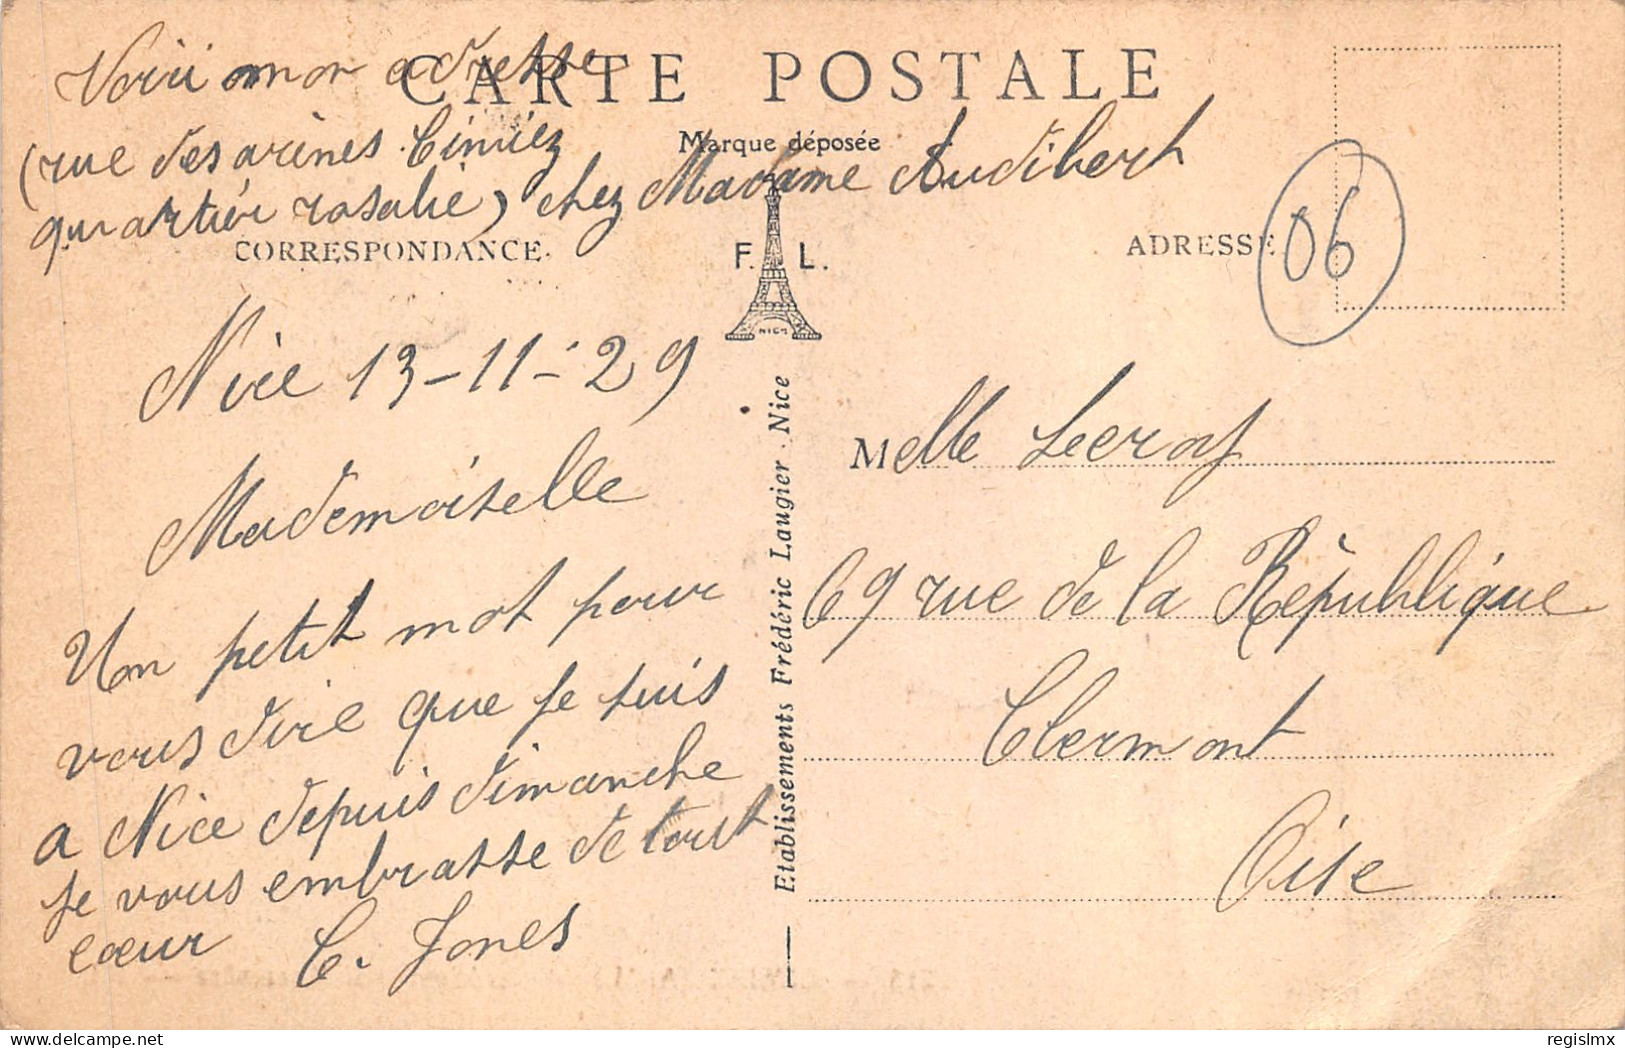 Voici mon adresse
CARTE POSTALE
(rue des arènes Cimiez
Marque déposée
quartier rosalie) chez Madame Audibert
CORRESPONDANCE.
F. L.
NICE
ADRESSE
06
Nice 13-11-29
Mademoiselle
Un petit mot pour
vous dire que je suis
a Nice depuis dimanche
je vous embrasse de tout
cœur C. Jones
Etablissements Frédéric Laugier - Nice
Melle Leeroy
69 rue de la République
Clermont
Oise
regislmx